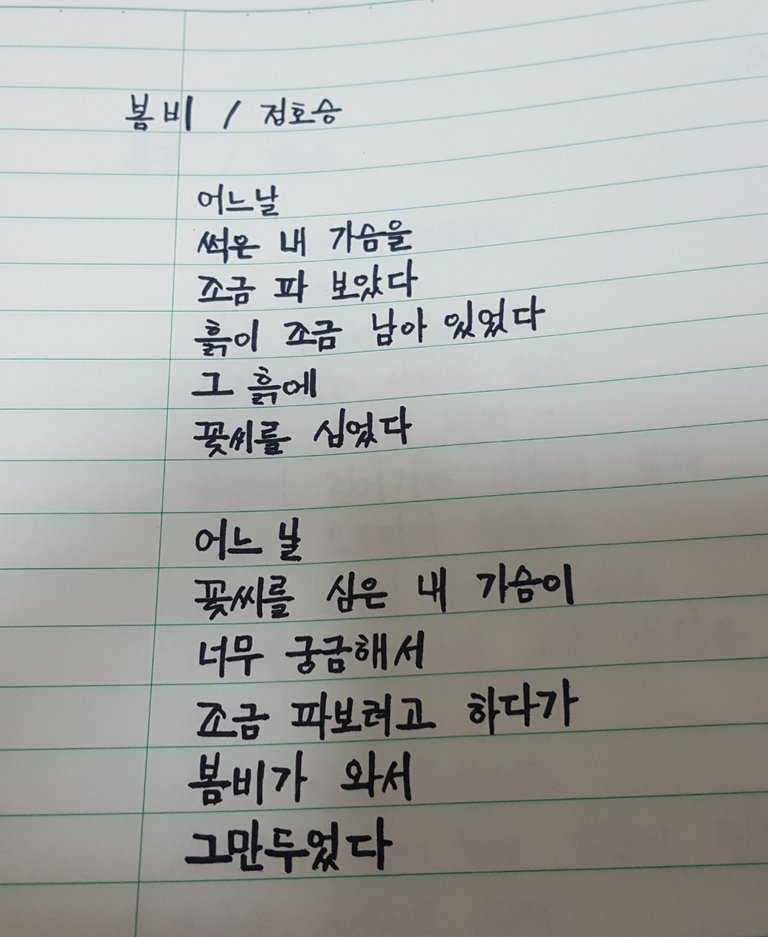 봄비 / 정호승
어느날
썩은 내 가슴을
조금 파 보았다
흙이 조금 남아 있었다
그 흙에
꽃씨를 심었다
어느 날
꽃씨를 심은 내 가슴이
너무 궁금해서
조금 파보려고 하다가
봄비가 와서
그만두었다